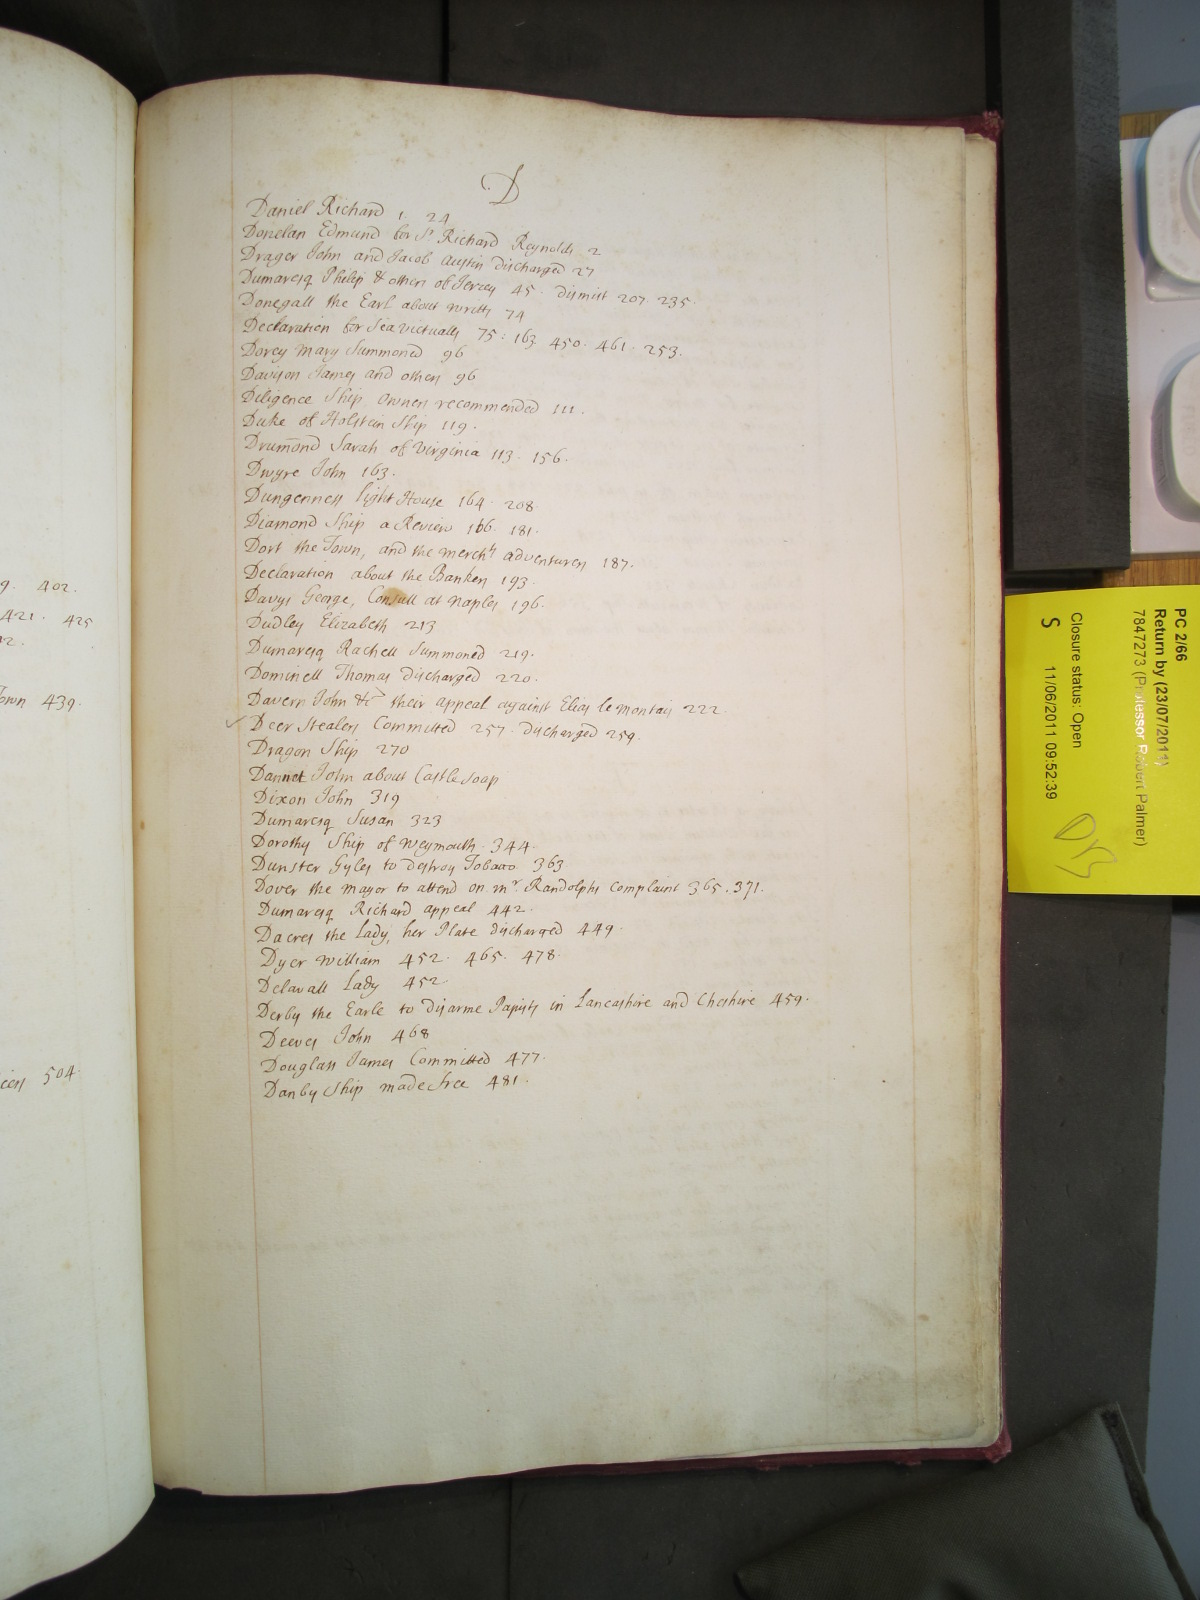 9. 402.
421. 425
12.
Town 439.
504.
D
Daniel Richard 1. 24
Donelan Edmund for Sr. Richard Reynolds 2
Drager John and Jacob Austin discharged 27
Dumaresq Philip & others of Jersey 45. dismist 207. 235.
Donegall the Earl about writts 74
Declaration for Sea victualls 75. 163. 450. 461. 253.
Dorey Mary Summoned 96
Davison James and others 96
Diligence Ship owners recommended 111.
Duke of Holstein Ship 119.
Drum̄ond Sarah of Virginia 113. 156.
Dwyre John 163.
Dungenness light House 164. 208
Diamond Ship a Review 166. 181.
Dort the Town, and the merchts adventurers 187.
Declaration about the Bankers 193.
Davys George, Consull at Naples 196.
Dudley Elizabeth 213
Dumaresq Rachell Summoned 219.
Dominell Thomas discharged 220.
Davern John &c their appeal against Elias le montais 222
Deer Stealers Committed 257. discharged 259.
Dragon Ship 270
Dannet John about Castle soap
Dixon John 319
Dumaresq Susan 323
Dorothy Ship of Weymouth. 344.
Dunster Gyles to destroy Tobacco 363
Dover the mayor to attend on mr Randolphs Complaint 365. 371.
Dumaresq Richard appeal 442.
Dacres the Lady, her Plate discharged 449.
Dyer William 452. 465. 478.
Delavall Lady 452.
Derby the Earle to disarme Papists in Lancashire and Cheshire 459.
Deeves John 468
Douglass James Committed 477.
Danby Ship made free 481.
PC 2/66
Return by (23/07/2011)
7847273 (Professor Robert Palmer)
Closure status: Open
S 11/06/2011 09:52:39